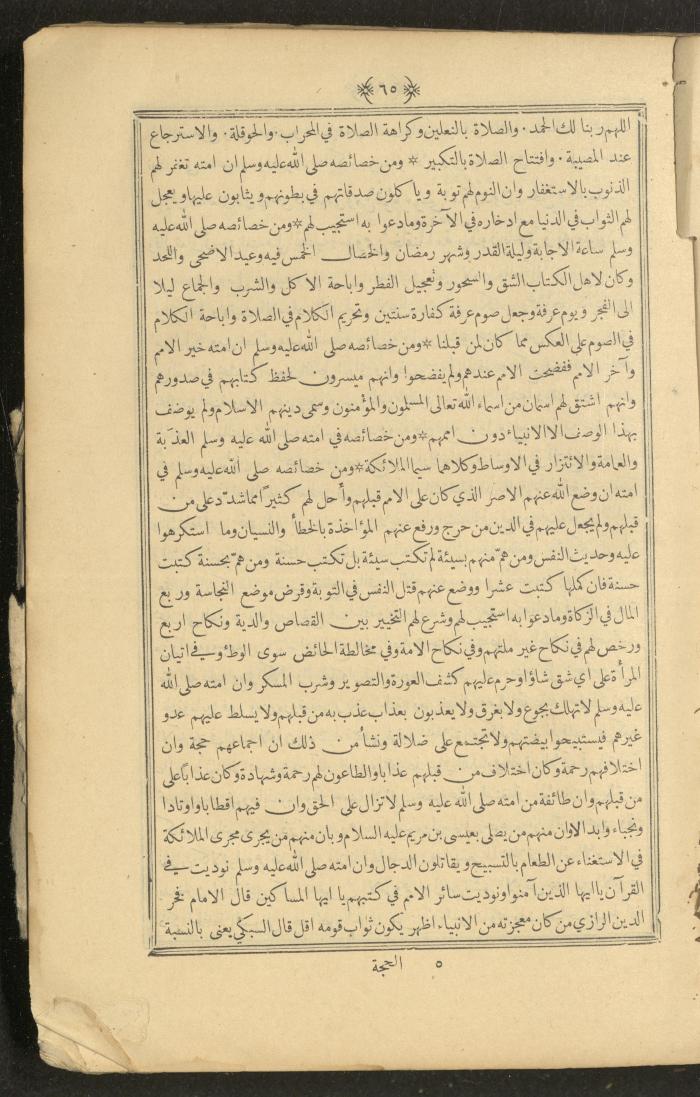 ٦٥
اللهم ربنا لك الحمد . والصلاة بالنعلين وكراهة الصلاة في المحراب . والحوقلة . والاسترجاع
عند المصيبة . وافتتاح الصلاة بالتكبير * ومن خصائصه صلى الله عليه وسلم ان امته تغفر لهم
الذنوب بالاستغفار وان النوم لهم توبة وياكلون صدقاتهم في بطونهم ويثابون عليها ويعجل
لهم الثواب في الدنيا مع ادخاره في الآخرة ومادعوا به استجيب لهم * ومن خصائصه صلى الله عليه
وسلم ساعة الاجابة وليلة القدر وشهر رمضان والخصال الخمس فيه وعيد الاضحى واللحد
وكان لاهل الكتاب الشق والسحور وتعجيل الفطر واباحة الاكل والشرب والجماع ليلا
الى الفجر ويوم عرفة وجعل صوم عرفة كفارة سنتين وتحريم الكلام في الصلاة واباحة الكلام
في الصوم على العكس مما كان لمن قبلنا * ومن خصائصه صلى الله عليه وسلم ان امته خير الامم
وآخر الامم ففضحت الامم عندهم ولم يفضحوا وانهم ميسرون لحفظ كتابهم في صدورهم
وانهم اشتق لهم اسمان من اسماء الله تعالى المسلمون والمؤمنون وسمى دينهم الاسلام ولم يوصف
بهذا الوصف الا الانبياء دون اممهم * ومن خصائصه في امته صلى الله عليه وسلم العذبة
والعامة والائتزار في الاوساط وكلاها سيما الملائكة * ومن خصائصه صلى الله عليه وسلم في
امته ان وضع الله عنهم الاصر الذي كان على الامم قبلهم وأحل لهم كثيرًا مما شدّد على من
قبلهم ولم يجعل عليهم في الدين من حرج ورفع عنهم المؤاخذة بالخطأ والنسيان وما استكرهوا
عليه وحديث النفس ومن همّ منهم بسيئة لم تكتب سيئة بل تكتب حسنة ومن همّ بحسنة كتبت
حسنة فان كملها كتبت عشرا ووضع عنهم قتل النفس في التوبة وقرض موضع النجاسة وربع
المال في الزكاة ومادعوا به استجيب لهم وشرع لهم التخيير بين القصاص والدية ونكاح اربع
ورخص لهم في نكاح غير ملتهم وفي نكاح الامة وفي مخالطة الحائض سوى الوطؤ وفي اتيان
المرأة على اي شق شاؤا وحرم عليهم كشف العورة والتصوير وشرب المسكر وان امته صلى الله
عليه وسلم لا تهلك بجوع ولا بغرق ولا يعذبون بعذاب عذب به من قبلهم ولا يسلط عليهم عدو
غيرهم فيستبيحوا بيضتهم ولا تجتمع على ضلالة ونشأ من ذلك ان اجماعهم حجة وان
اختلافهم رحمة وكان اختلاف من قبلهم عذابا والطاعون لهم رحمة وشهادة وكان عذابًا على
من قبلهم وان طائفة من امته صلى الله عليه وسلم لا تزال على الحق وان فيهم اقطابا واوتادا
ونجباء وابد الاوان منهم من يصلى بعيسى بن مريم عليه السلام وبان منهم من يجرى مجرى الملائكة
في الاستغناء عن الطعام بالتسبيح ويقاتلون الدجال وان امته صلى الله عليه وسلم نوديت في
القرآن يا ايها الذين آمنوا ونوديت سائر الامم في كتبهم يا ايها المساكين قال الامام فخر
الدين الرازي من كان معجزته من الانبياء اظهر يكون ثواب قومه اقل قال السبكي يعنى بالنسبة
٥ الحجة